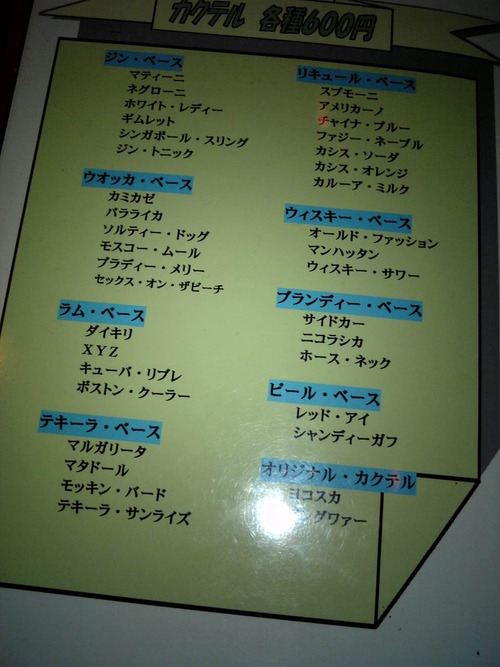 カクテル 各種600円
ジン・ベース
マティーニ
ネグローニ
ホワイト・レディー
ギムレット
シンガポール・スリング
ジン・トニック
ウオッカ・ベース
カミカゼ
バラライカ
ソルティー・ドッグ
モスコー・ムール
ブラディー・メリー
セックス・オン・ザビーチ
ラム・ベース
ダイキリ
XYZ
キューバ・リブレ
ボストン・クーラー
テキーラ・ベース
マルガリータ
マタドール
モッキン・バード
テキーラ・サンライズ
リキュール・ベース
スプモーニ
アメリカーノ
チャイナ・ブルー
ファジー・ネーブル
カシス・ソーダ
カシス・オレンジ
カルーア・ミルク
ウィスキー・ベース
オールド・ファッション
マンハッタン
ウィスキー・サワー
ブランディー・ベース
サイドカー
ニコラシカ
ホース・ネック
ビール・ベース
レッド・アイ
シャンディーガフ
オリジナル・カクテル
ヨコスカ